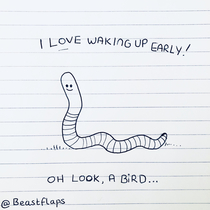 I LOVE WAKING UP EARLY!
OH LOOK, A BIRD...
@Beastflaps